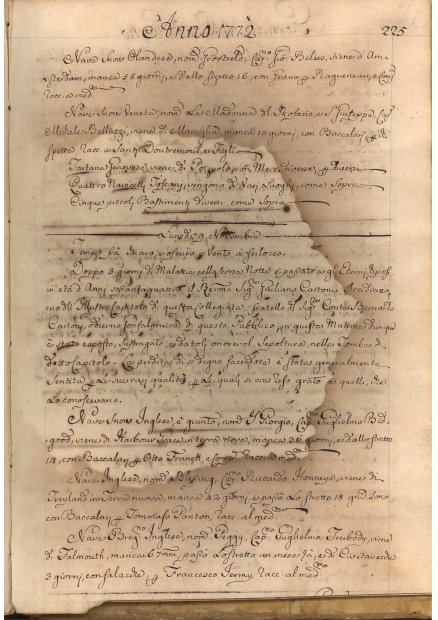 Anno 1772
225
Nave Snow Olandese, nom.
viene d'Am
sterdam, manca 58 giorni, e dallo stretto 16, con Grano
racc. a med.
Nave Snow Veneta, nom. La Madonna del Rosario, e S. Giuseppe, Cap.
Michele Bellazzi, viene di Marsiglia manca 10 giorni, con Baccalari
racc. a Santi Doutremoul, e Figli
Tartana Genovese, viene di Pozzuolo con Merci diverse
Quattro Navicelli Toscani, vengono di Vari Luoghi, come Sopra
Cinque piccoli Bastimenti diversi, come Sopra
Lunedì 9 Novembre
Tempo frà Chiaro, e oscuro, e Vento a Scilocco.
Doppo 3 giorni di Malattia nella scorsa Notte è passato agl'Eterni Riposi
in età d'Anni settantaquattro il Rev.mo Sig. Giuliano Cartoni Arcidiaco
no dell'Illustre Capitolo di questa Collegiata, fratello del Sig. Conte Bernardo
Cartoni, odierno Gonfaloniere di questo Pubblico, in questa Mattina dunque
è stato esposto, suffragato, e datoli onorevol Sepoltura nella Tomba di
detto Capitolo. La perdita di sì degno sacerdote è stata generalmente
sentita per le sue rari qualità per le quali si era reso grato a quelli, che
Lo conoscevano.
Nave Snow Inglese, è quinto, nom. S. Giorgio, Cap. Guglielmo Bid
good, viene di Harbour Grace in terra nova, manca 26 giorni, e dallo stretto
14, con Baccalari per Otto Franck, e Comp. racc. al med.
Nave Inglese, nom. Blessing, Cap. Riccardo
viene di
in Terra nuova, manca 42 giorni, e passò Lo stretto 18 gior. sono
con Baccalari per Tommaso Panton, racc. al med.
Nave Breg. Inglese, nom. Peggy, Cap. Guglielmo Trubody, viene
di Falmouth, manca 67 ni, passò Lo stretto un mese fà, e da Civitavecchia
3 giorni, con Salacche per Francesco Jermy, racc. al med.